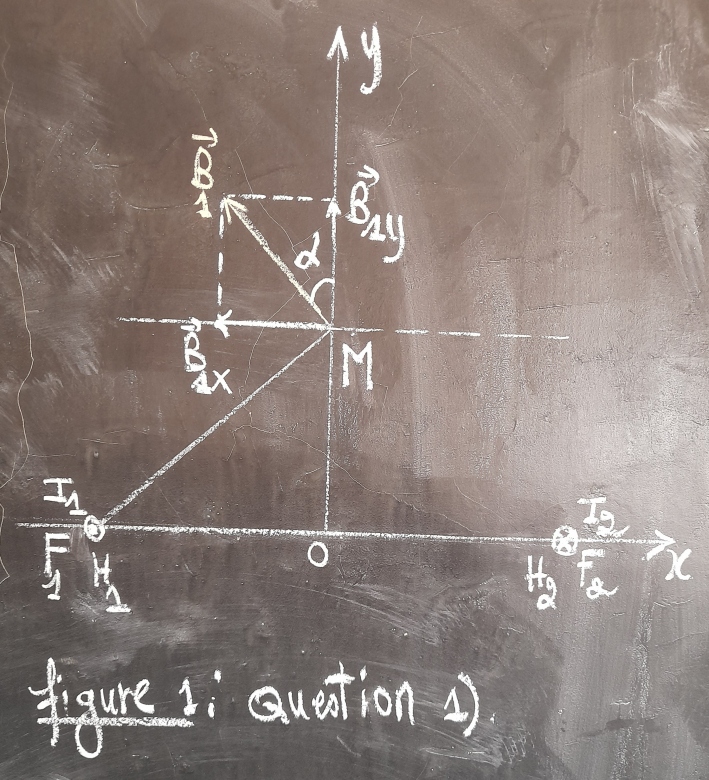 y
B⃗1
B⃗1y
α
B⃗1x
M
I1
I2
F1
H1
O
H2
F2
x
figure 1: Question 1).